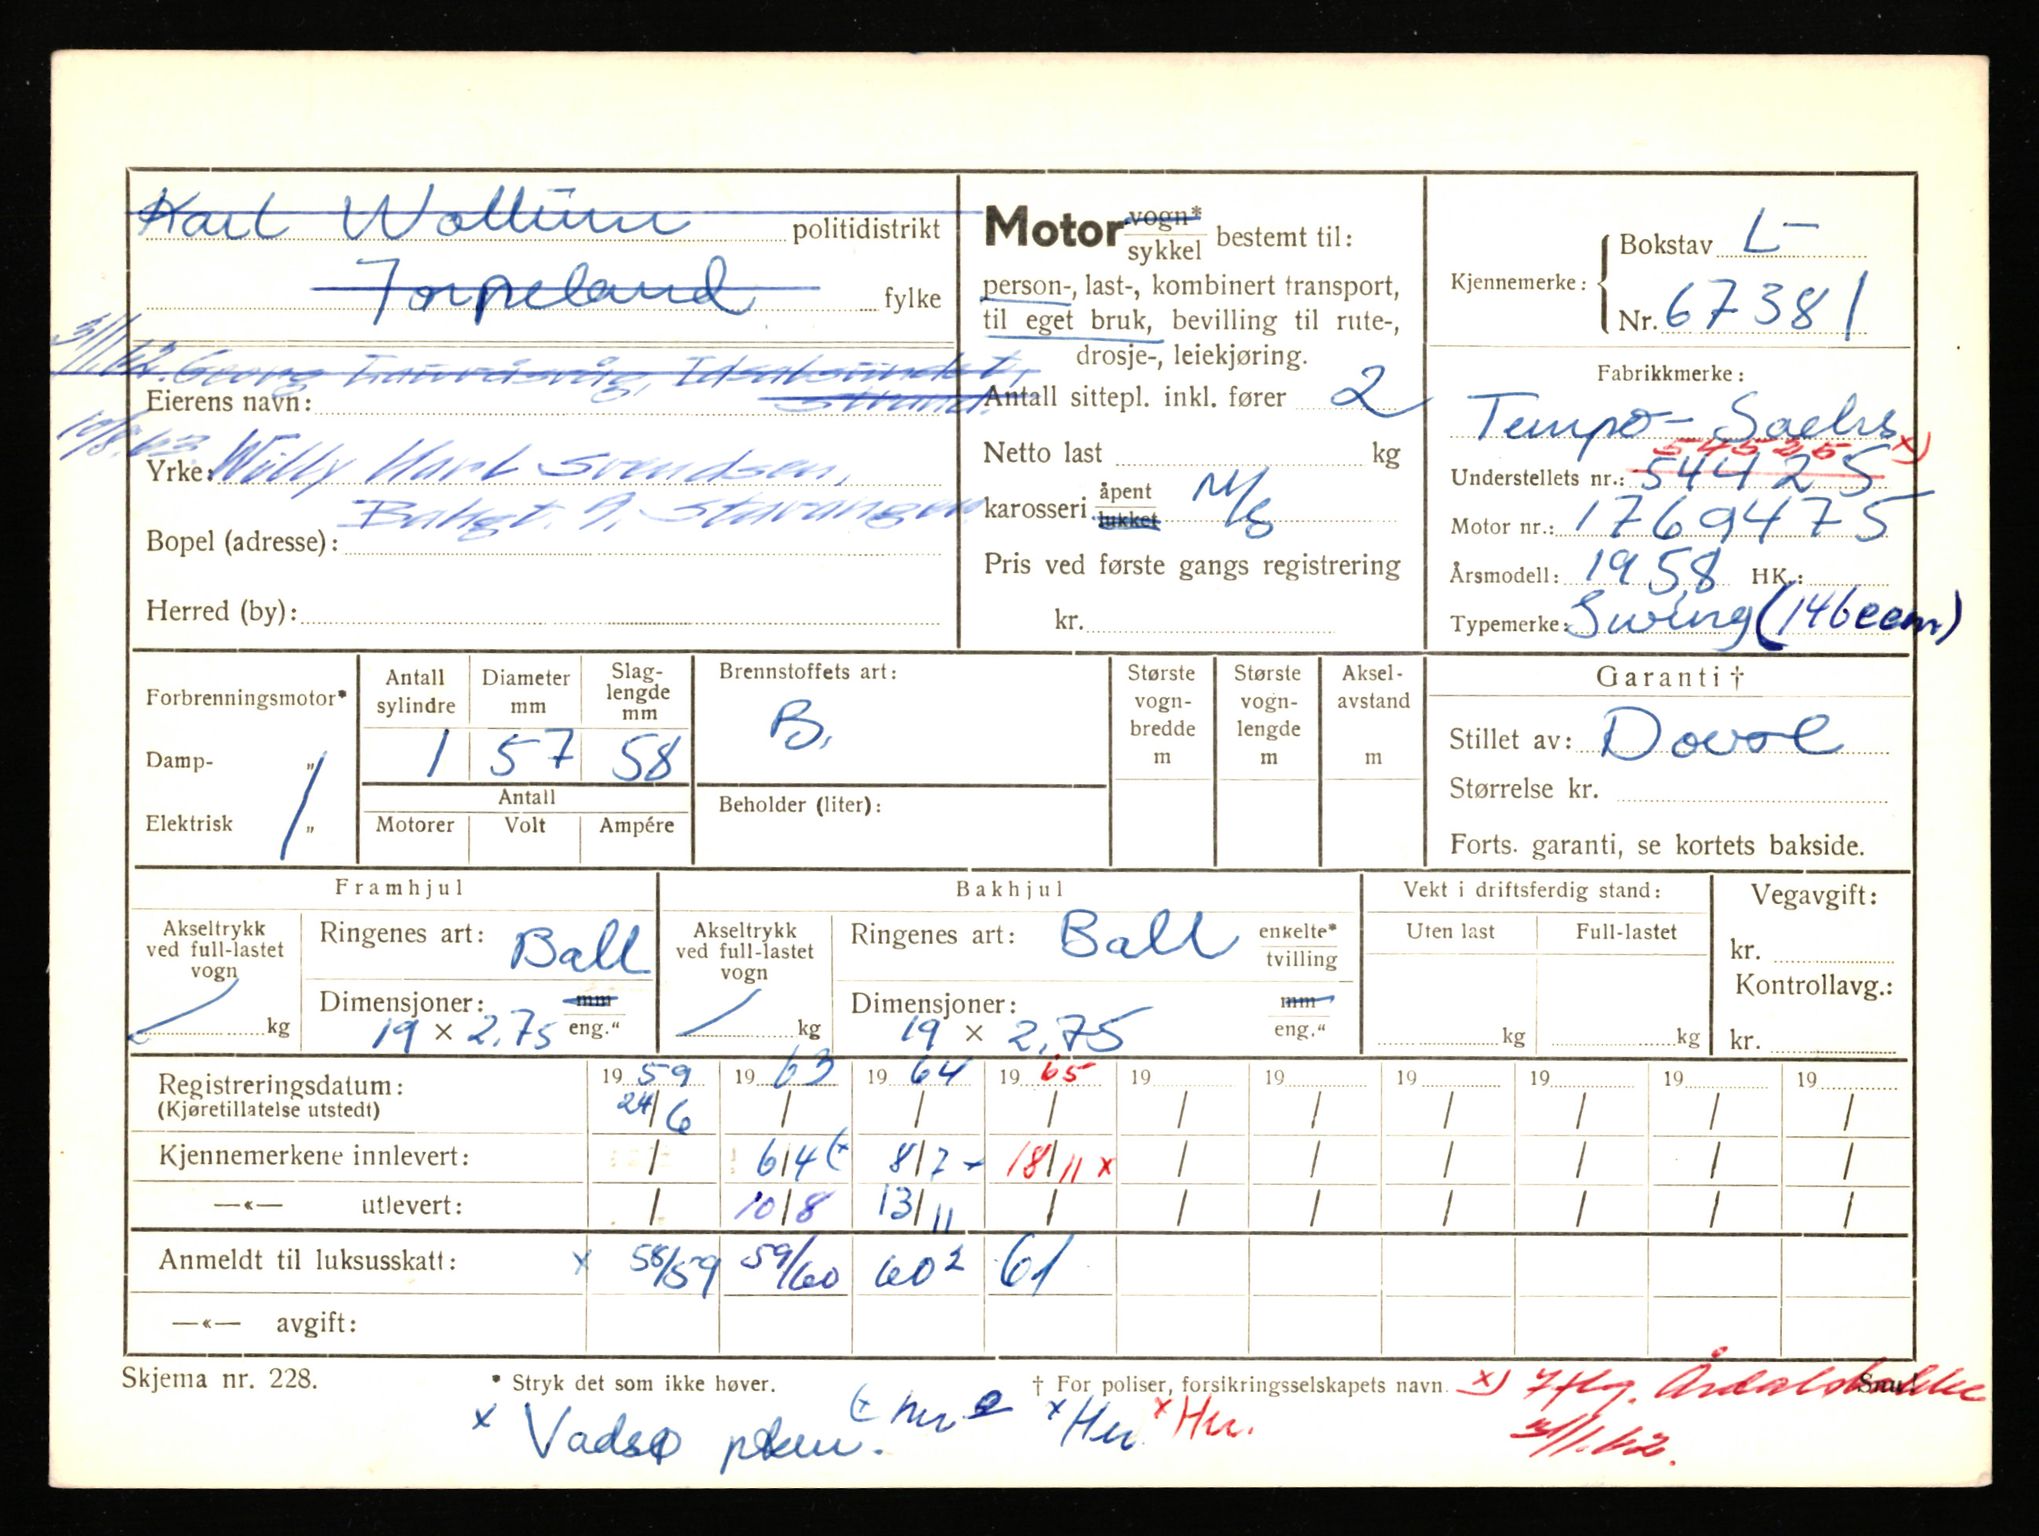 Karl Wollum politidistrikt
Jørpeland fylke
3/1.62. Georg
Eierens navn:
10/8.63. Willy Karl Svendsen,
Yrke:
9, Stavanger
Bopel (adresse):
Herred (by):
Motor vogn* sykkel bestemt til:
person-, last-, kombinert transport,
til eget bruk, bevilling til rute-,
drosje-, leiekjøring.
Antall sittepl. inkl. fører 2
Netto last kg
karosseri åpent lukket M/S
Pris ved første gangs registrering
kr.
Kjennemerke: Bokstav L-
Nr. 67381
Fabrikkmerke:
Tempo-Sachs
54525 x)
Understellets nr.: 54425
Motor nr.: 1769475
Årsmodell: 1958 HK.:
Typemerke: Swing (146ccm)
Forbrenningsmotor*
Damp- „
Elektrisk „
Antall sylindre 1
Diameter mm 57
Slag-lengde mm 58
Antall
Motorer Volt Ampére
Brennstoffets art:
B.
Beholder (liter):
Største vogn-bredde m
Største vogn-lengde m
Aksel-avstand m
Garanti †
Stillet av: Dovre
Størrelse kr.
Forts. garanti, se kortets bakside.
Framhjul
Akseltrykk ved full-lastet vogn kg
Ringenes art: Ball
Dimensjoner: mm
19 × 2,75 eng.“
Bakhjul
Akseltrykk ved full-lastet vogn kg
Ringenes art: Ball enkelte* tvilling
Dimensjoner: mm
19 × 2,75 eng.“
Vekt i driftsferdig stand:
Uten last Full-lastet
kg kg
Vegavgift:
kr.
Kontrollavg.:
kr.
Registreringsdatum: 19 59 19 63 19 64 19 65 19 19 19 19 19 19
(Kjøretillatelse utstedt) 24/6 / / / / / / / / /
Kjennemerkene innlevert: / 6/4 (x 8/7 x 18/11 x / / / / / /
—«— utlevert: / 10/8 13/11 / / / / / / /
Anmeldt til luksusskatt: x 58/59 59/60 60² 61
—«— avgift:
Skjema nr. 228.
* Stryk det som ikke høver.
† For poliser, forsikringsselskapets navn.
Snu!
x) iflg.
3/1.62.
x Vadsø
x Hu. x Hu.